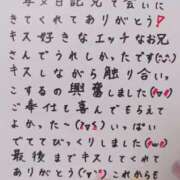 写メ日記見て会いに
きてくれてありがとう!
キス好きなエッチなお兄
さんでうれしかったです(^^)
キスしながら触り合い
っこするの興奮しました
ご奉仕も喜んでもらえて
よかった〜 いっぱい
でててびっくりしました
最後までキスしてくれて
ありがとう